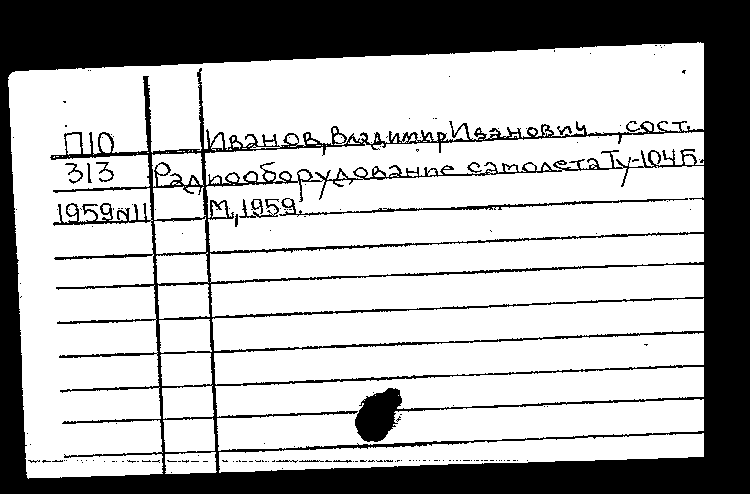 П10 Иванов, Владимир Иванович, сост.
313 Радиооборудование самолета Ту-104Б.
1959 №11 М., 1959.